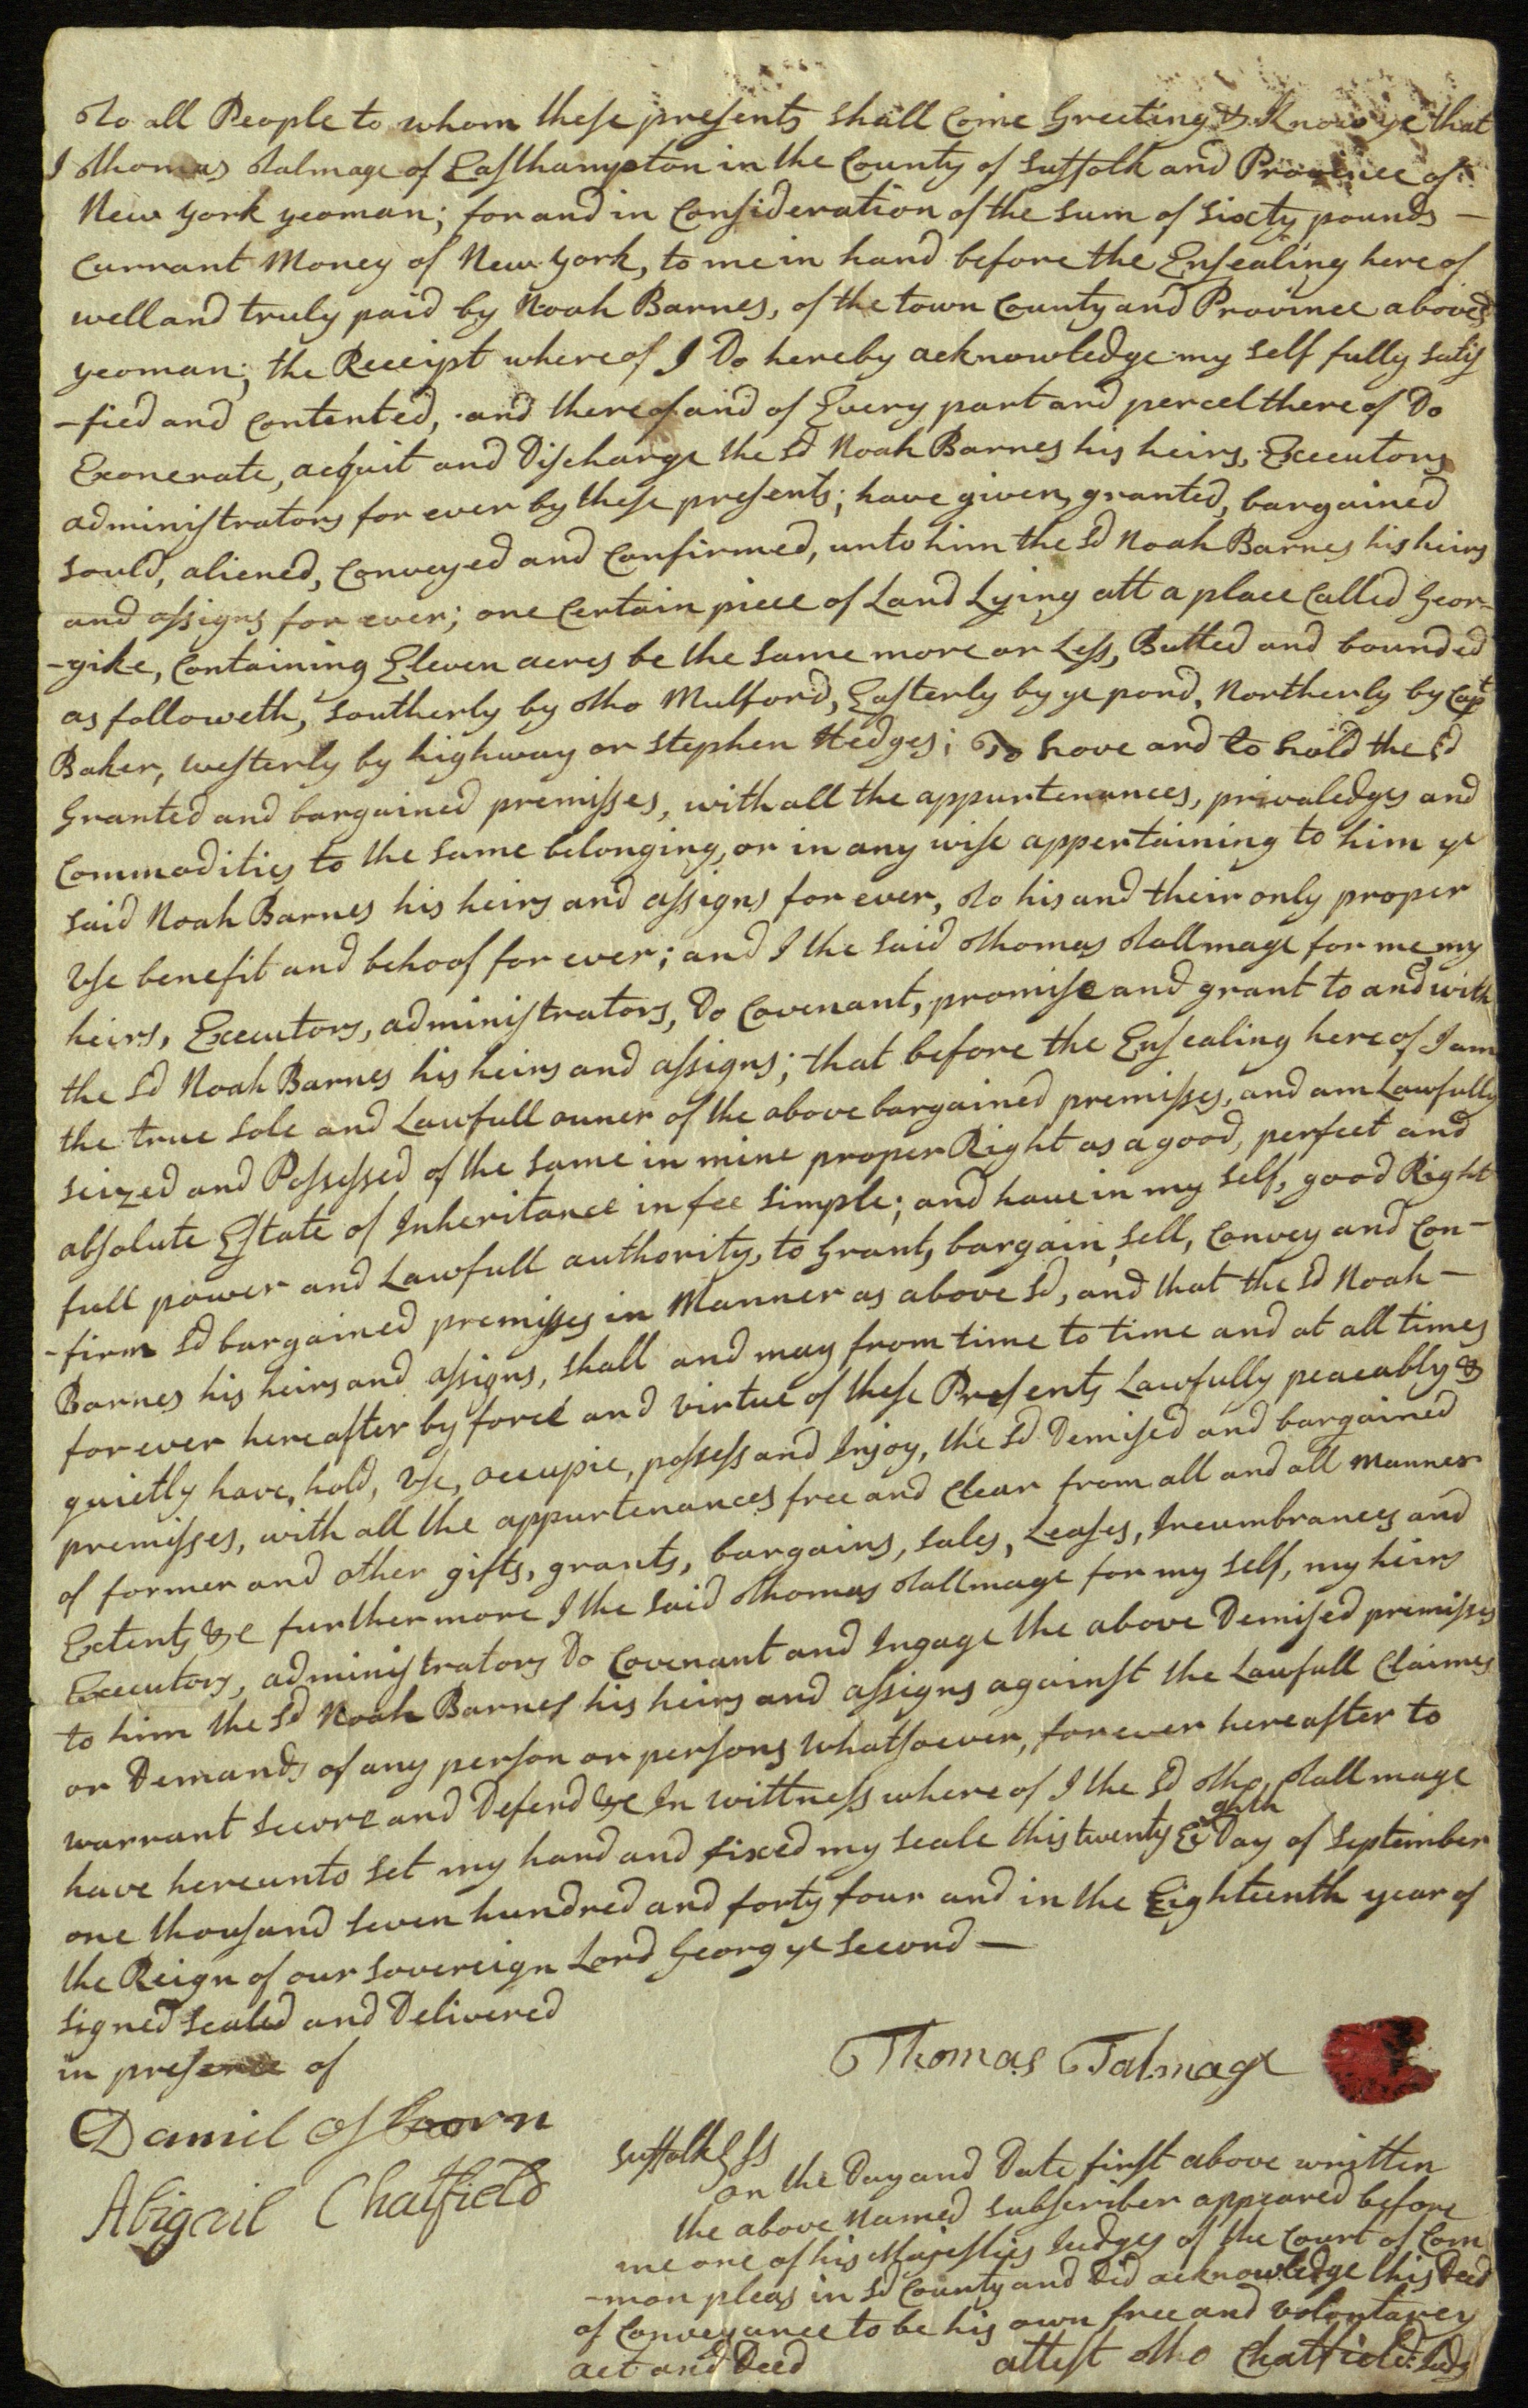 To all People to whom these presents shall Come Greeting &. Know ye that
I Thomas Talmage of Easthampton in the County of Suffolk and Province of
New York yeoman; for and in Consideration of the sum of sixty pounds —
Currant Money of New York, to me in hand before the Ensealing here of
well and truly paid by Noah Barnes, of the town County and Province aboves'd
yeoman; the Receipt whereof I Do hereby acknowledge my self fully satis
-fied and Contented, and thereof and of Every part and percel thereof Do
Exonerate, acquit and Discharge the sd Noah Barnes his heirs, Executors
administrators for ever by these presents; have given, granted, bargained
sould, aliened, Conveyed and Confirmed, unto him the sd Noah Barnes his heirs
and assigns for ever; one Certain piece of Land Lying att a place Called Geor-
-gike, Containing Eleven acres be the same more or Less, Butted and bounded
as followeth, Southerly by Tho Mulford, Easterly by ye pond, Northerly by Capt
Baker, westerly by highway or Stephen Hedges; To have and to hold the sd
Granted and bargained premisses, with all the appurtenances, privaledges and
Commodities to the same belonging, or in any wise appertaining to him ye
said Noah Barnes his heirs and assigns for ever, To his and their only proper
Use benefit and behoof for ever; and I the said Thomas Tallmage for me, my
heirs, Executors, administrators, Do Covenant, promise and grant to and with
the sd Noah Barnes his heirs and assigns; that before the Ensealing here of I am
the true sole and Lawfull owner of the above bargained premisses, and am Lawfully
seized and Possessed of the same in mine proper Right as a good, perfect and
absolute Estate of Inheritance in fee simple; and have in my self, good Right
full power and Lawfull authority, to Grant, bargain, sell, Convey and Con-
-firm sd bargained premisses in Manner as above sd, and that the sd Noah —
Barnes his heirs and assigns, shall and may from time to time and at all times
for ever hereafter by force and virtue of these Presents Lawfully peaceably &
quietly have, hold, Use, occupie, possess and Injoy, the sd Demised and bargained
premisses, with all the appurtenances free and Clear from all and all Manner
of former and other gifts, grants, bargains, sales, Leases, Incumbrances and
Extents &c furthermore I the said Thomas Tallmage for my self, my heirs
Executors, administrators Do Covenant and Ingage the above Demised premisses
to him the sd Noah Barnes his heirs and assigns against the Lawfull Claimes
or Demands of any person or persons whatsoever, forever hereafter to
warrant secure and Defend &c In wittness where of I the sd Tho Tallmage
have hereunto set my hand and fixed my seale this twenty Eighth Day of September
one thousand seven hundred and forty four and in the Eighteenth year of
the Reign of our sovereign Lord Georg ye second —
signed sealed and Delivered
in presence of
Thomas Talmage
Daniel Osborn
Abigail Chatfield
Suffolk ss
on the Day and Date first above written
the above Named subscriber appeared before
me one of his Majesties Judges of the Court of Com
-mon pleas in sd County and Did acknowledge this Deed
of Conveyance to be his own free and voluntarey
act and Deed attest Tho Chatfield: Judg